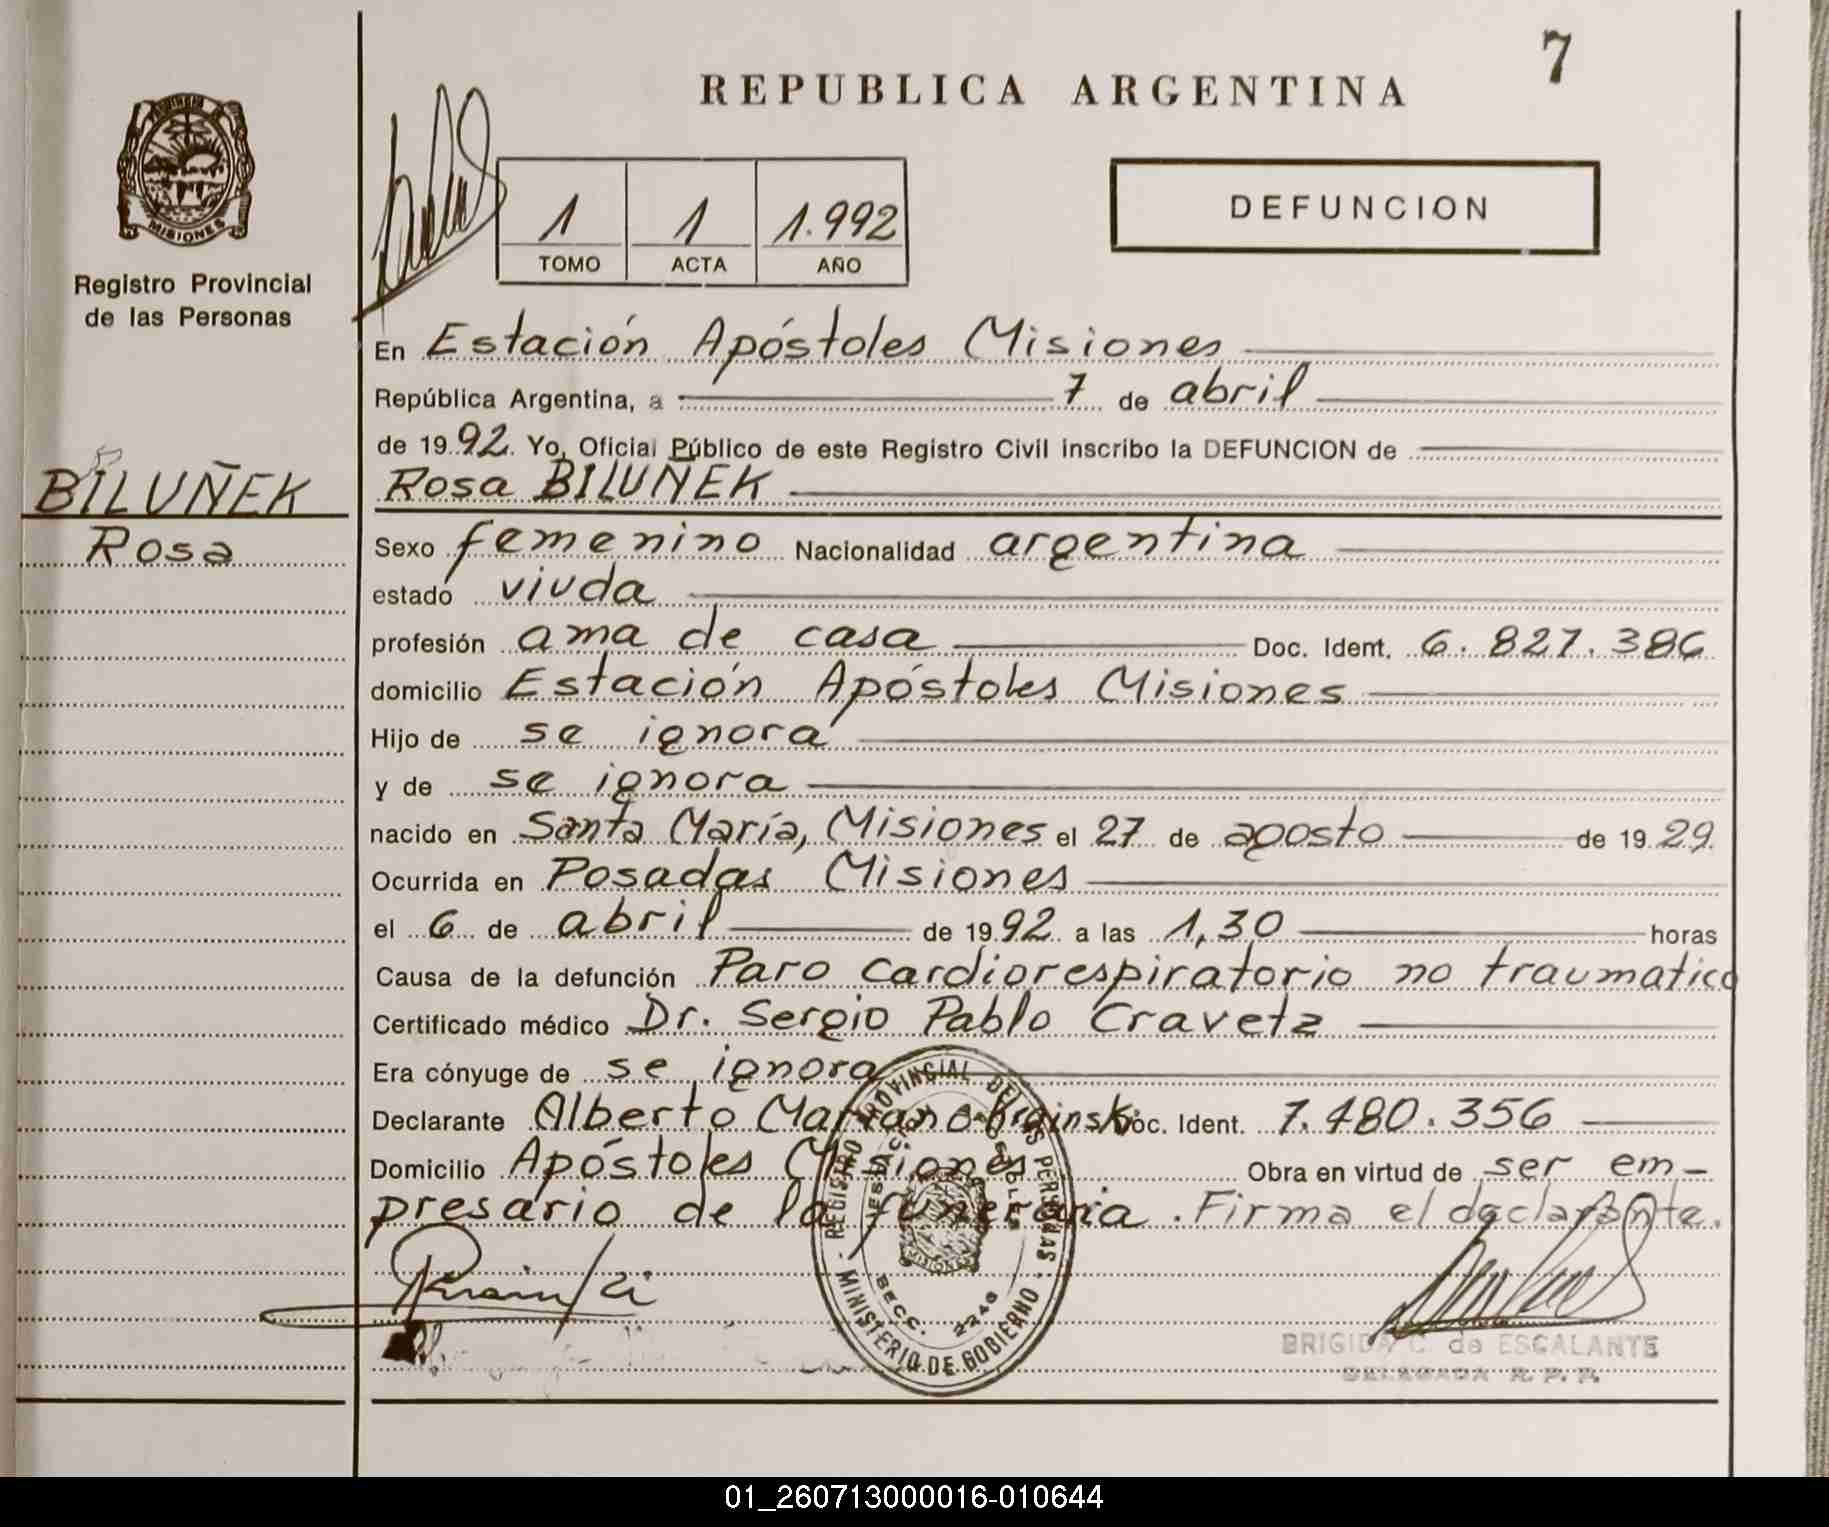 7
REPUBLICA ARGENTINA
MISIONES
Registro Provincial
de las Personas
1 1 1.992
TOMO ACTA AÑO
DEFUNCION
En Estación Apóstoles Misiones
República Argentina, a 7 de abril
de 1992. Yo, Oficial Público de este Registro Civil inscribo la DEFUNCION de
BILUÑEK
Rosa
Rosa BILUÑEK
Sexo femenino Nacionalidad argentina
estado viuda
profesión ama de casa Doc. Ident. 6.827.386
domicilio Estación Apóstoles Misiones
Hijo de se ignora
y de se ignora
nacido en Santa María, Misiones el 27 de agosto de 1929.
Ocurrida en Posadas Misiones
el 6 de abril de 1992 a las 1,30 horas
Causa de la defunción Paro cardiorespiratorio no traumatico
Certificado médico Dr. Sergio Pablo Cravetz
Era cónyuge de se ignora
Declarante Alberto Mariano Doc. Ident. 7.480.356
Domicilio Apóstoles Misiones Obra en virtud de ser em-
presario de la funeraria. Firma el declarante.
REGISTRO PROVINCIAL DE LAS PERSONAS
MINISTERIO DE GOBIERNO
SECC. 2246
MISIONES
BRIGIDA C. de ESCALANTE
DELEGADA R. P. P.
01_260713000016-010644